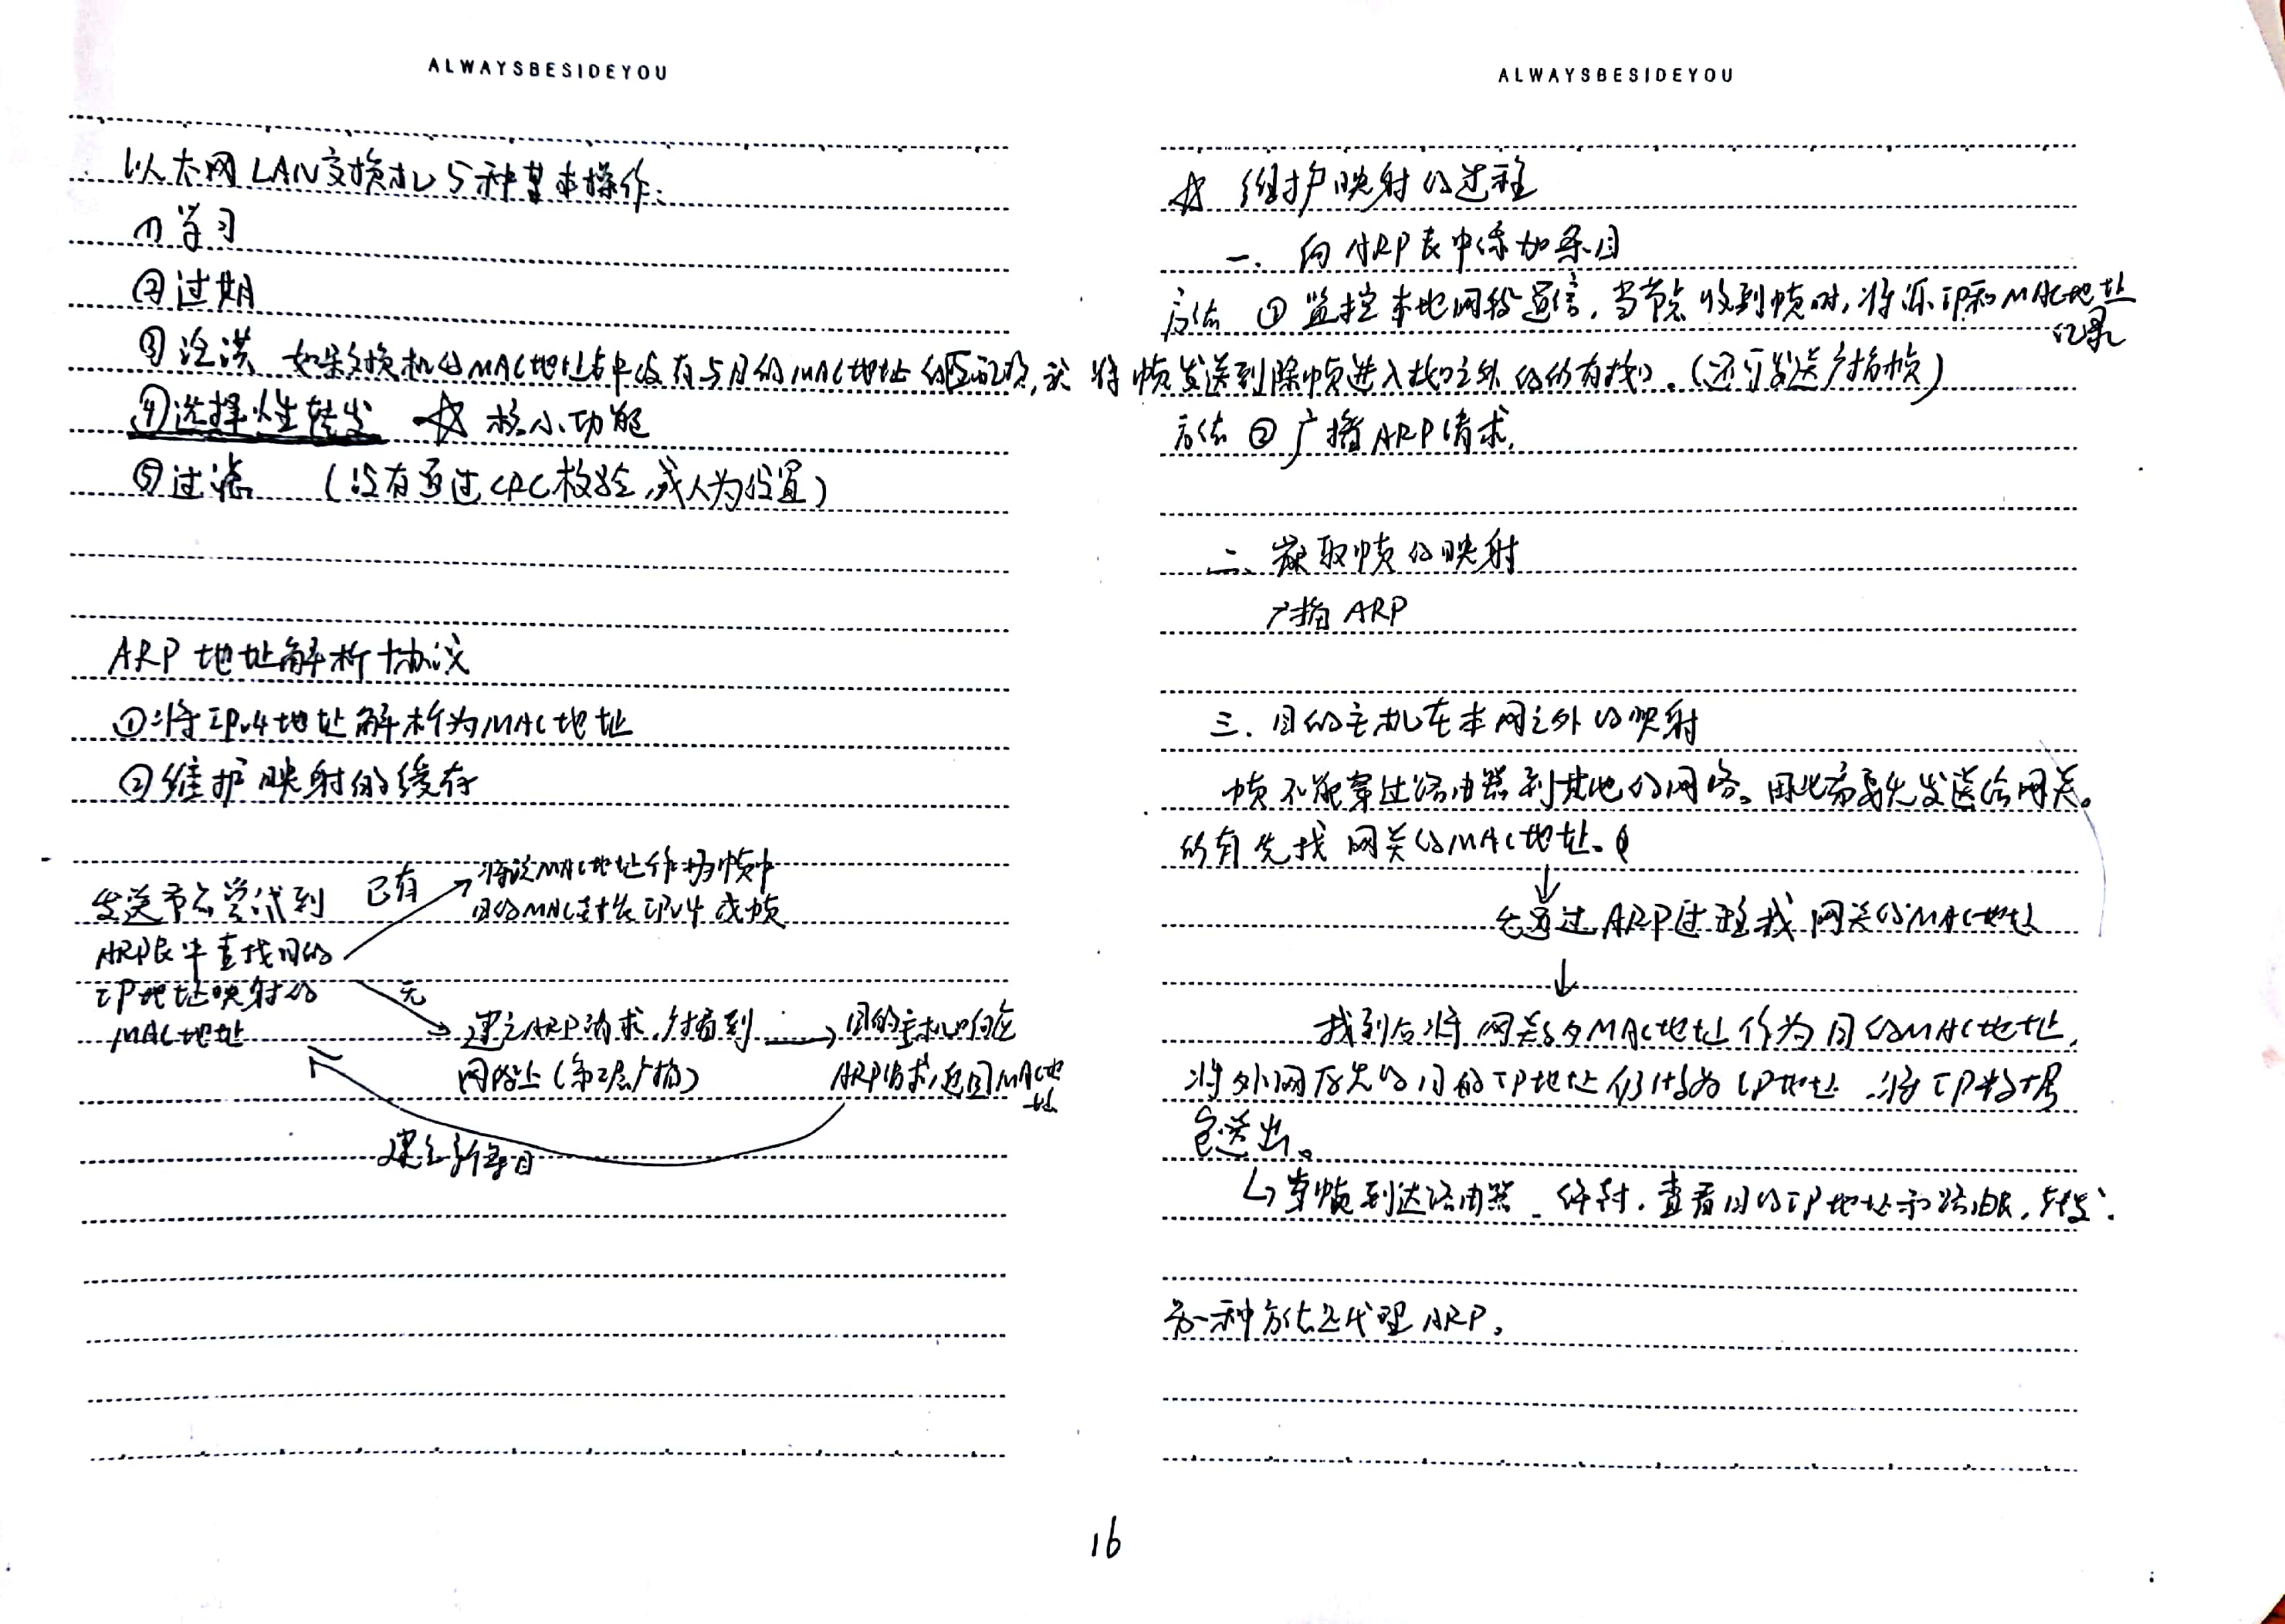 ALWAYSBESIDEYOU
以太网LAN交换机5种基本操作:
①学习
②过期
③泛洪 如果交换机的MAC地址表中没有与目的MAC地址的匹配项,就将帧发送到除帧进入接口之外的所有接口.(还可发送广播帧)
④选择性转发 ☆ 核心功能
⑤过滤 (没有通过CRC校验,或人为设置)
ARP 地址解析协议
①将IPv4地址解析为MAC地址
②维护映射的缓存
发送节点尝试到
ARP表中查找目的
IP地址映射的
MAC地址
已有
将该MAC地址作为帧中
目的MAC封装IPv4成帧
无
建立ARP请求,广播到
网络上(第2层广播)
目的主机响应
ARP请求,返回MAC地
址
建立新条目
ALWAYSBESIDEYOU
☆ 维护映射的过程
一. 向ARP表中添加条目
方法 ① 监控本地网段通信,当节点收到帧时,将源IP和MAC地址
记录
方法 ② 广播ARP请求.
二. 获取帧的映射
广播 ARP
三. 目的主机在本网之外的映射
帧不能穿过路由器到其他的网络。因此需要先发送给网关。
所有先找 网关的MAC地址。
↓
通过ARP过程找 网关的MAC地址
↓
找到后将 网关的MAC地址作为目的MAC地址,
将外网原先的目的IP地址仍作为IP地址.将IP数据
包送出。
↳ 当帧到达路由器 解封.查看目的IP地址和路由表,转发.
另一种方法是代理ARP.
16